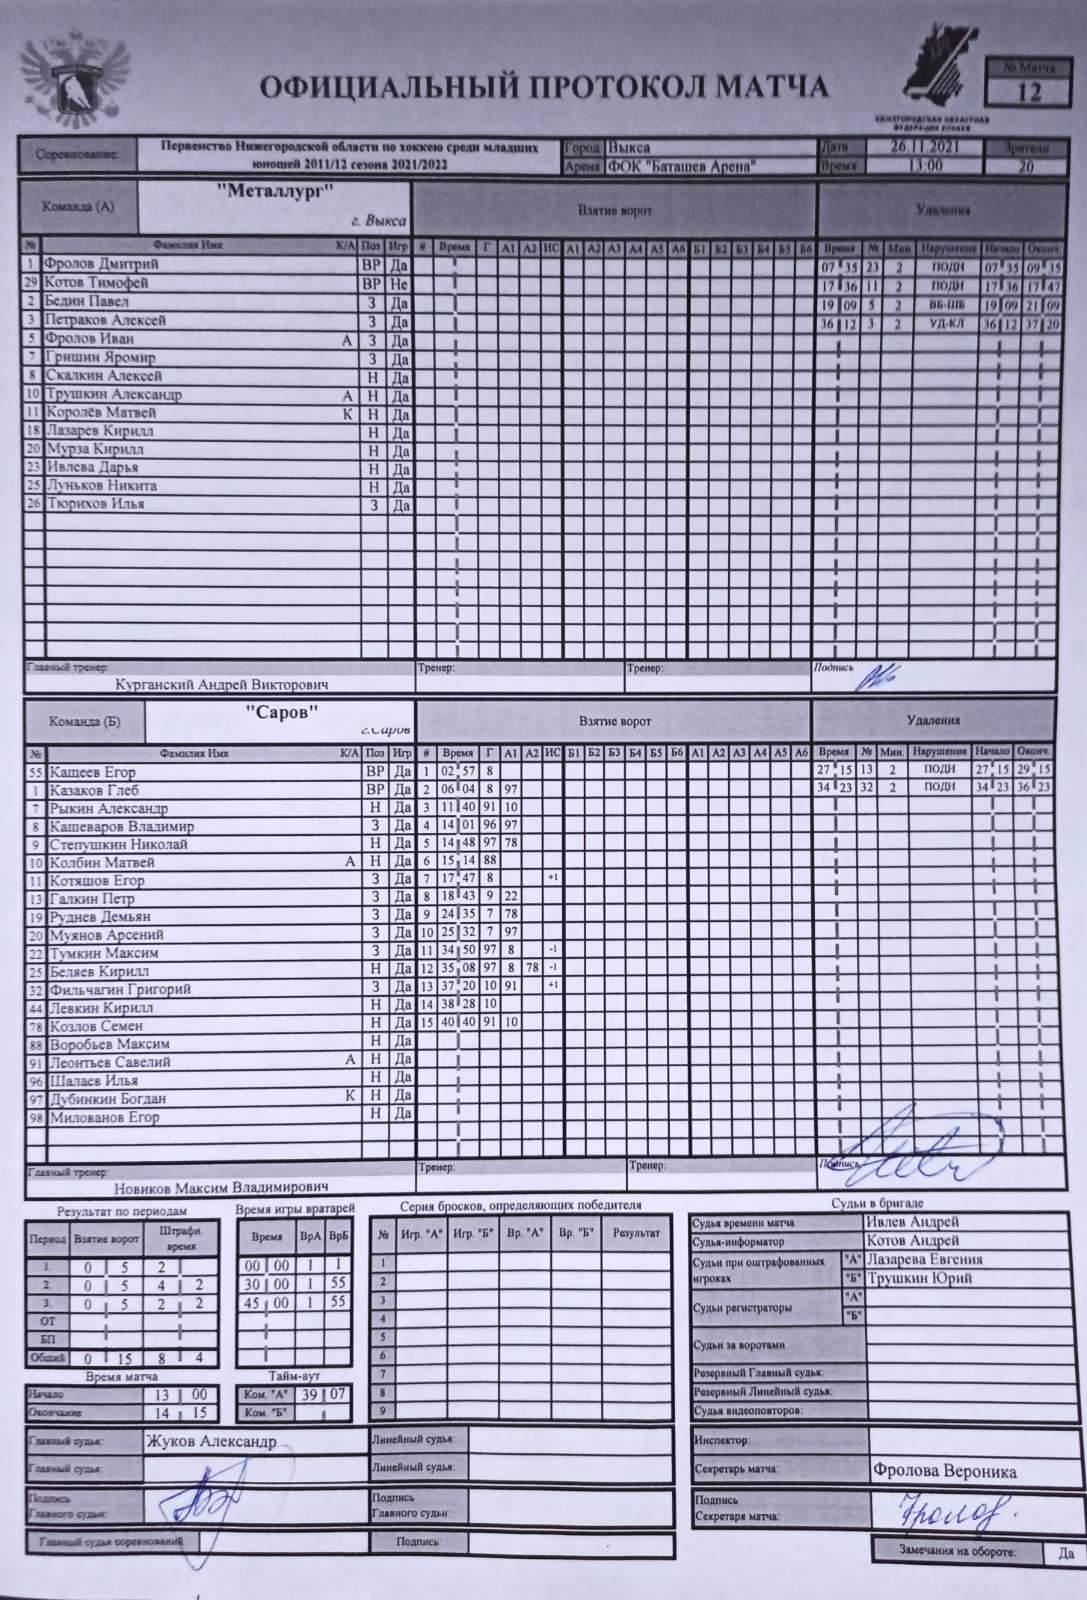 ОФИЦИАЛЬНЫЙ ПРОТОКОЛ МАТЧА
НИЖЕГОРОДСКАЯ ОБЛАСТНАЯ
ФЕДЕРАЦИЯ ХОККЕЯ
№ Матча
12
Соревнование: Первенство Нижегородской области по хоккею среди младших юношей 2011/12 сезона 2021/2022
Город Выкса Дата 26.11.2021 Зрители
Арена ФОК "Баташев Арена" Время 13:00 20
Команда (А) "Металлург" г. Выкса Взятие ворот Удаления
№ Фамилия Имя К/А Поз Игр # Время Г А1 А2 ИС А1 А2 А3 А4 А5 А6 Б1 Б2 Б3 Б4 Б5 Б6 Время № Мин. Нарушения Начало Оконч.
1 Фролов Дмитрий ВР Да 07 35 23 2 ПОДН 07 35 09 35
29 Котов Тимофей ВР Не 17 36 11 2 ПОДН 17 36 17 47
2 Бедин Павел З Да 19 09 5 2 ВБ-ШБ 19 09 21 09
3 Петраков Алексей З Да 36 12 3 2 УД-КЛ 36 12 37 20
5 Фролов Иван А З Да
7 Гришин Яромир З Да
8 Скалкин Алексей Н Да
10 Трушкин Александр А Н Да
11 Королёв Матвей К Н Да
18 Лазарев Кирилл Н Да
20 Мурза Кирилл Н Да
23 Ивлева Дарья Н Да
25 Луньков Никита Н Да
26 Тюрихов Илья З Да
Главный тренер: Тренер: Тренер: Подпись
Курганский Андрей Викторович
Команда (Б) "Саров" г.Саров Взятие ворот Удаления
№ Фамилия Имя К/А Поз Игр # Время Г А1 А2 ИС Б1 Б2 Б3 Б4 Б5 Б6 А1 А2 А3 А4 А5 А6 Время № Мин. Нарушение Начало Оконч.
55 Кащеев Егор ВР Да 1 02 57 8 27 15 13 2 ПОДН 27 15 29 15
1 Казаков Глеб ВР Да 2 06 04 8 97 34 23 32 2 ПОДН 34 23 36 23
7 Рыкин Александр Н Да 3 11 40 91 10
8 Кашеваров Владимир З Да 4 14 01 96 97
9 Степушкин Николай Н Да 5 14 48 97 78
10 Колбин Матвей А Н Да 6 15 14 88
11 Котяшов Егор З Да 7 17 47 8 +1
13 Галкин Петр З Да 8 18 43 9 22
19 Руднев Демьян З Да 9 24 35 7 78
20 Муянов Арсений З Да 10 25 32 7 97
22 Тумкин Максим З Да 11 34 50 97 8 -1
25 Беляев Кирилл Н Да 12 35 08 97 8 78 -1
32 Фильчагин Григорий З Да 13 37 20 10 91 +1
44 Левкин Кирилл Н Да 14 38 28 10
78 Козлов Семен Н Да 15 40 40 91 10
88 Воробьев Максим Н Да
91 Леонтьев Савелий А Н Да
96 Шалаев Илья Н Да
97 Дубинкин Богдан К Н Да
98 Милованов Егор Н Да
Главный тренер: Тренер: Тренер: Подпись
Новиков Максим Владимирович
Результат по периодам
Период Взятие ворот Штрафн. время
1. 0 5 2
2. 0 5 4 2
3. 0 5 2 2
ОТ
БП
Общий 0 15 8 4
Время матча
Начало 13 00
Окончание 14 15
Время игры вратарей
Время ВрА ВрБ
00 00 1 1
30 00 1 55
45 00 1 55
Тайм-аут
Ком. "А" 39 07
Ком. "Б"
Серия бросков, определяющих победителя
№ Игр. "А" Игр. "Б" Вр. "А" Вр. "Б" Результат
1
2
3
4
5
6
7
8
9
Судьи в бригаде
Судья времени матча Ивлев Андрей
Судья-информатор Котов Андрей
Судьи при оштрафованных игроках "А" Лазарева Евгения
"Б" Трушкин Юрий
Судьи регистраторы "А"
"Б"
Судьи за воротами
Резервный Главный судья:
Резервный Линейный судья:
Судья видеоповторов:
Главный судья: Жуков Александр Линейный судья: Инспектор:
Главный судья: Линейный судья: Секретарь матча: Фролова Вероника
Подпись Главного судьи: Подпись Главного судьи: Подпись Секретаря матча: Фролов
Главный судья соревнований: Подпись: Замечания на обороте: Да